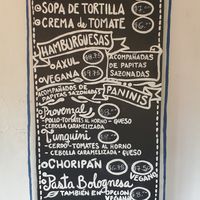 SOPA DE TORTILLA
CREMA DE TOMATE
HAMBURGUESAS
AXUL
ACOMPAÑADAS DE PAPITAS SAZONADAS
VEGANA
ACOMPAÑADOS DE PAPITAS SAZONADAS
PANINIS
Provenzal
POLLO-TOMATES AL HORNO - QUESO
CEBOLLA CARAMELIZADA
CERDO-TOMATES AL HORNO
- CEBOLLA CARAMELIZADA - QUESO
CHORIPAN
VEGANO
Pasta Bolognesa
TAMBIÉN EN OPCION VEGANA